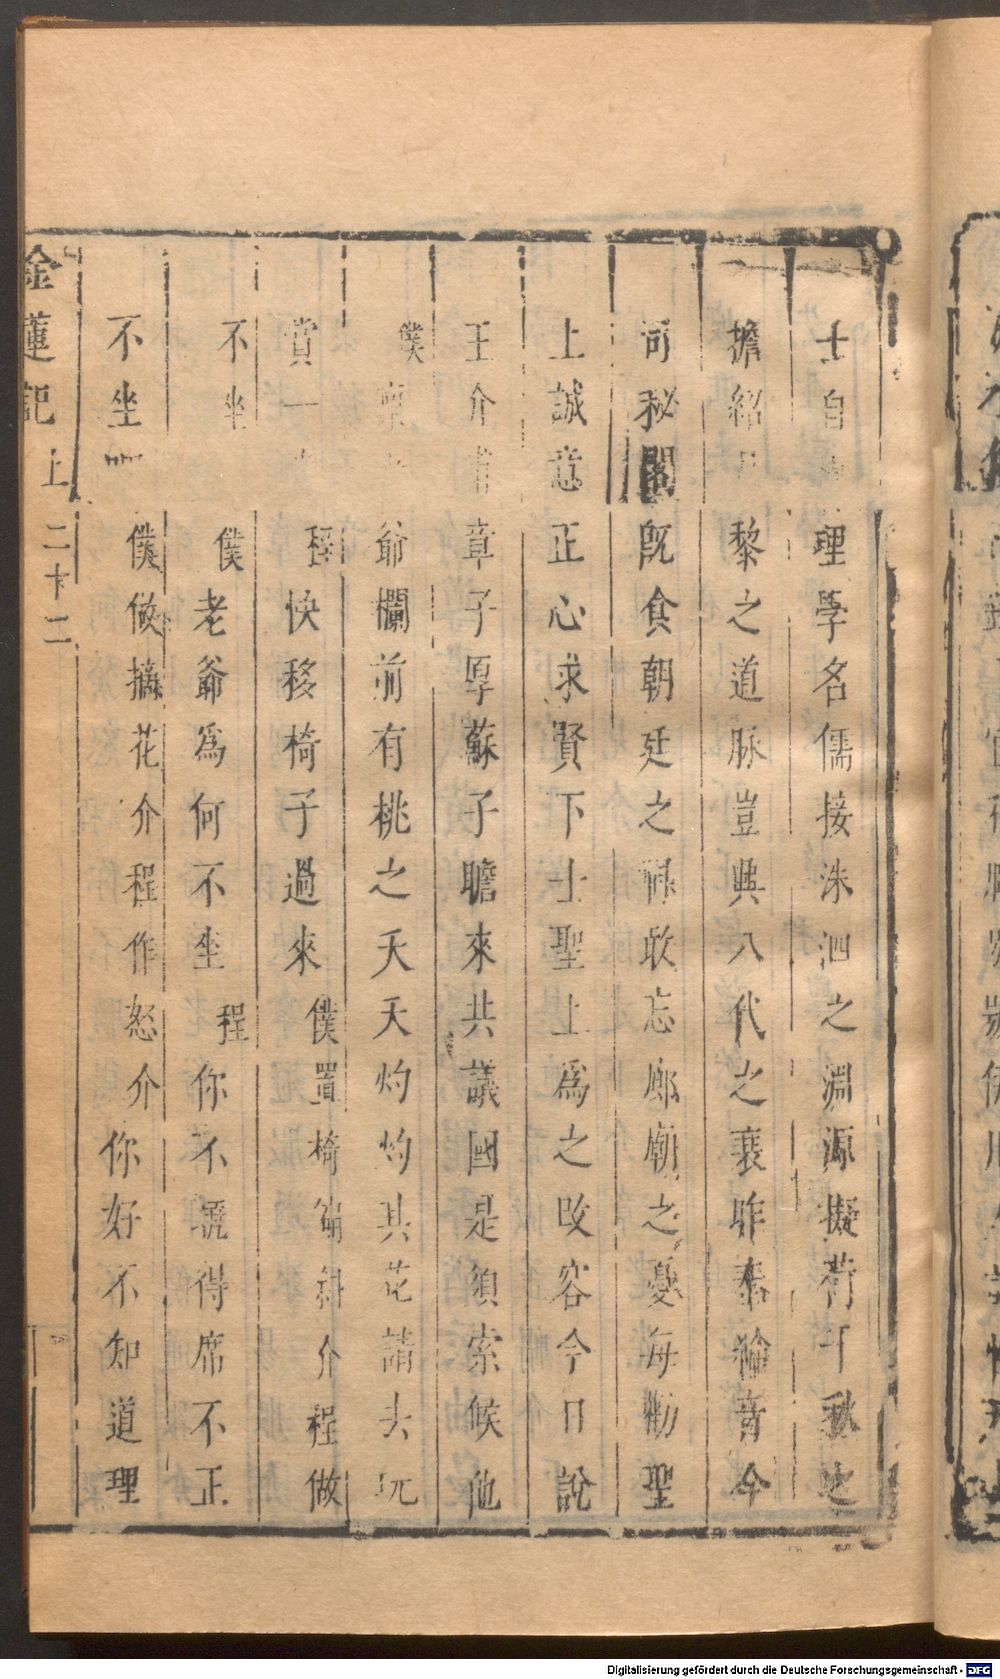 士自理學名儒接洙泗之淵源擬荷千秋之
擔紹黎之道脉豈與八代之衰昨奉綸音今
司秘閣旣食朝廷之祿敢忘廊廟之憂每勸聖
上誠意正心求賢下士聖上爲之改容今日說
王介甫章子厚蘇子瞻來共議國是須索候他
僕爺欄前有桃之夭夭灼灼其花請去玩
賞一程快移椅子過來僕置椅斜介程做
不坐僕老爺爲何不坐程你不曉得席不正
不坐僕做摘花介程作怒介你好不知道理
金蓮記上二十二
Digitalisierung gefördert durch die Deutsche Forschungsgemeinschaft - DFG